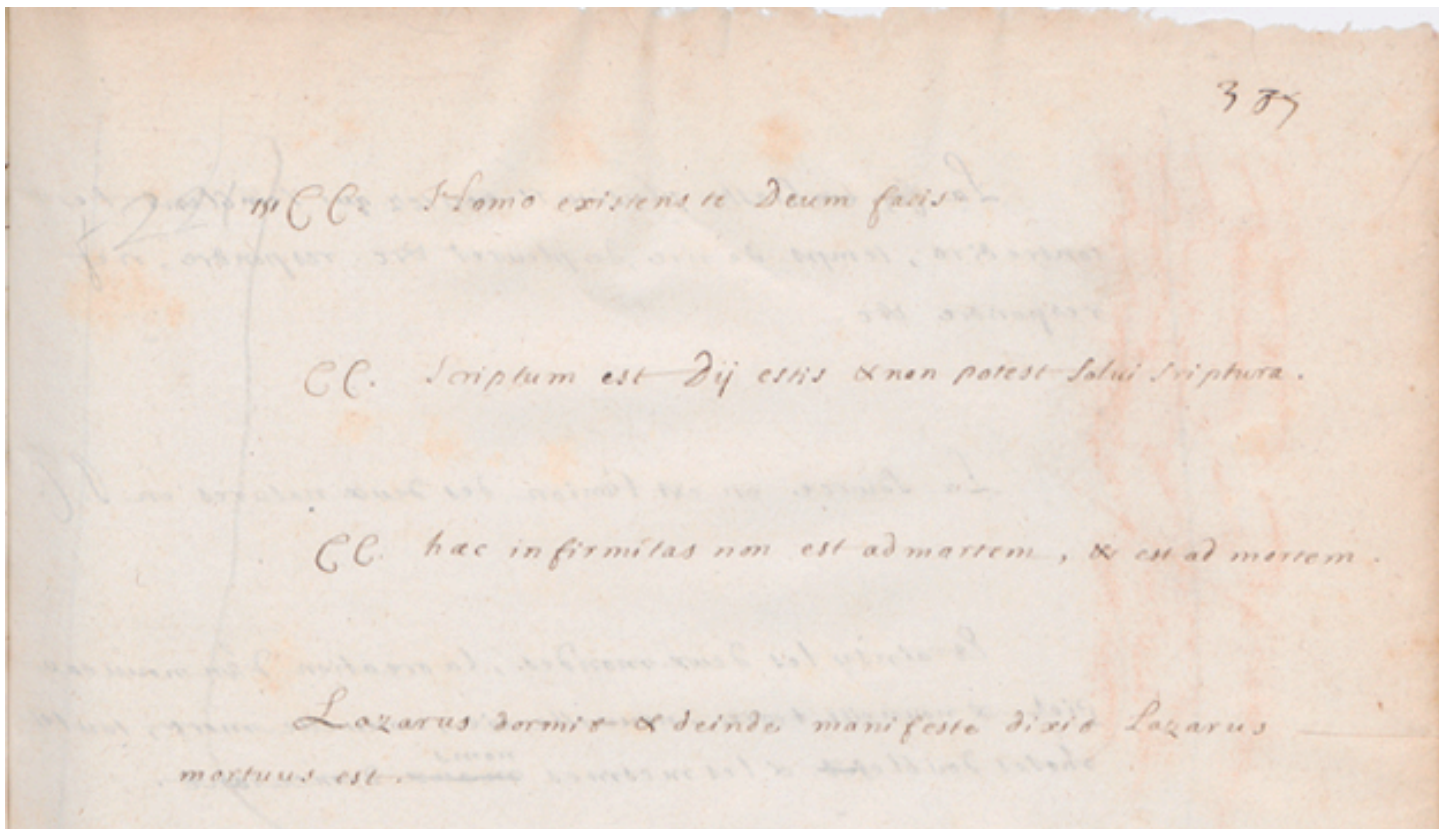 385
CC. Homo existens te Deum facis
CC. Scriptum est Dij estis & non potest solui scriptura.
CC. hæc infirmitas non est ad mortem, & est ad mortem.
Lazarus dormit & deinde manifeste dixit Lazarus
mortuus est.